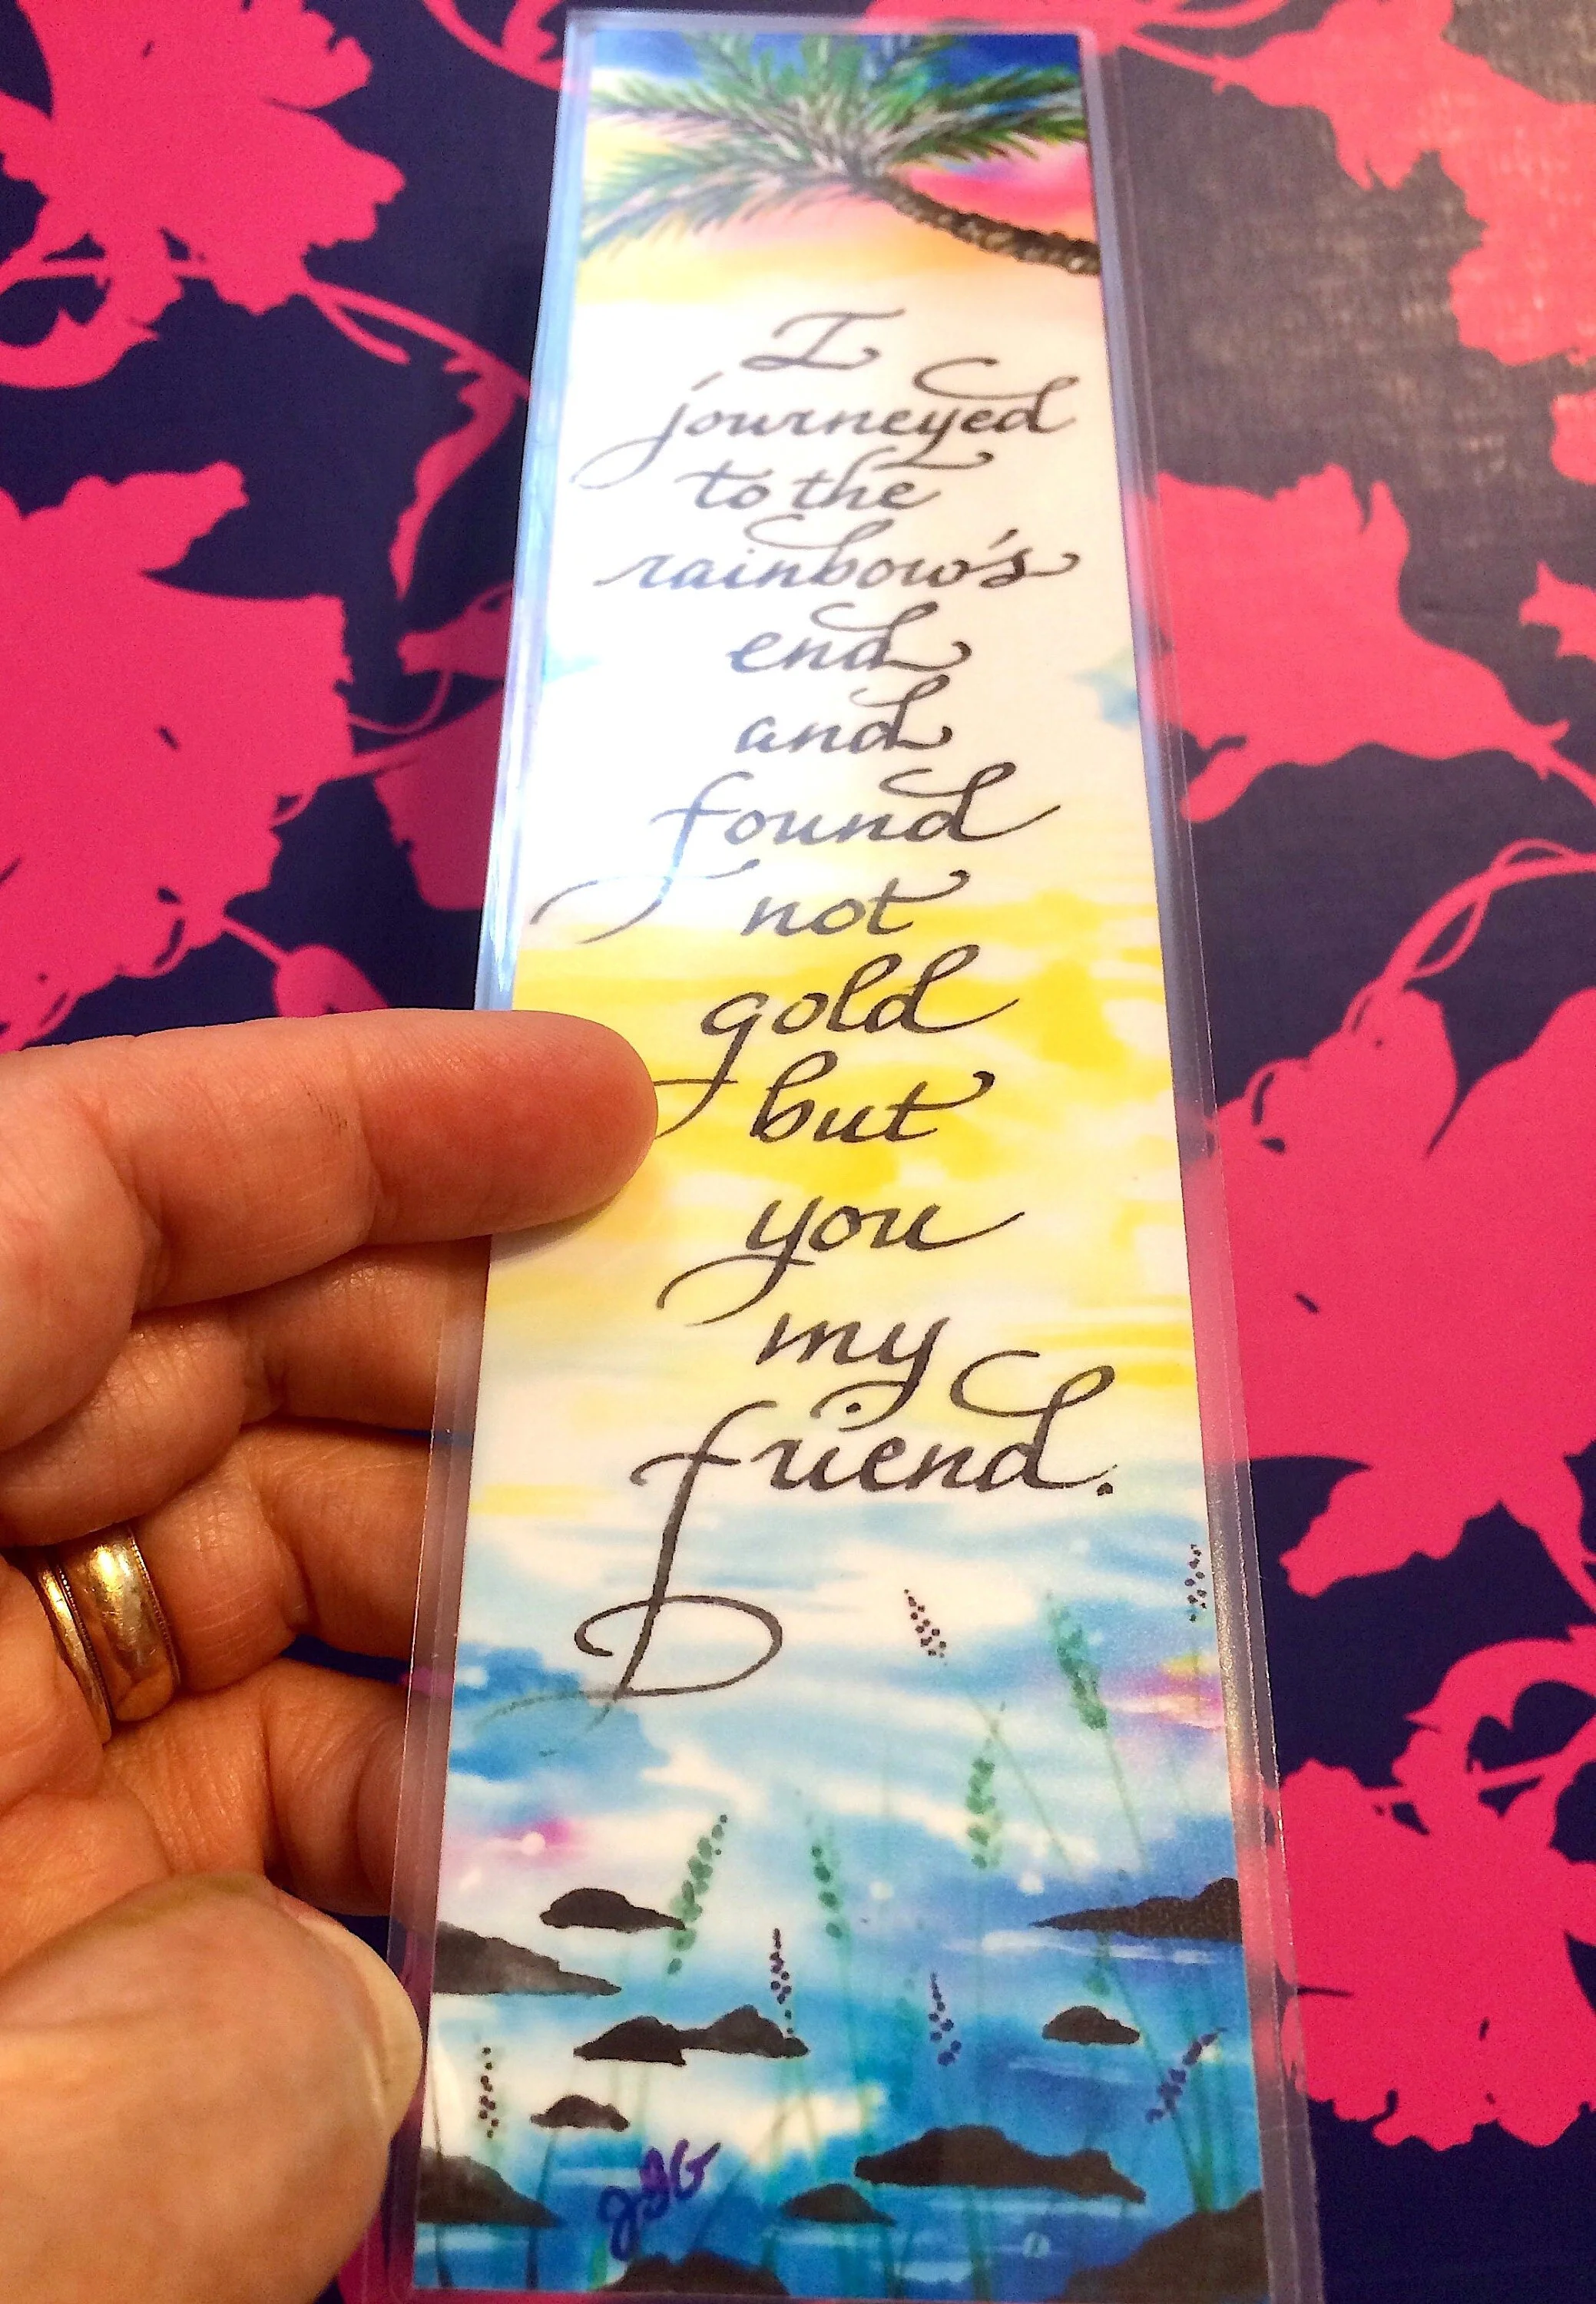 I
journeyed
to the
rainbow's
end
and
found
not
gold
but
you
my
friend.
JGG